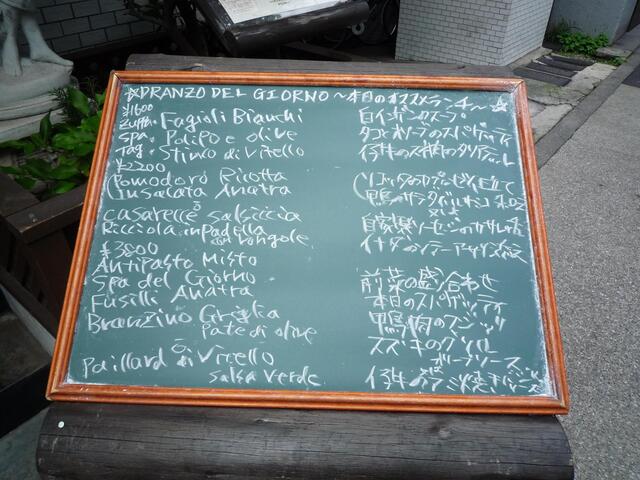 ☆PRANZO DEL GIORNO～本日のオススメランチ～☆
¥1600
Zuppa. Fagioli Bianchi 白インゲンのスープ
Spa. Polipo e olive タコとオリーブのスパゲッティ
Tag. Stinco di Vitello 仔牛のスネ肉のタリアテッレ
¥2200
Pomodoro Ricotta
Insalata Anatra
casarecce salsiccia 自家製ソーセージの
Ricciola in Padella イナダのソテー アサリ
con vongole
¥3800
Antipasto Misto 前菜の盛り合わせ
Spa del Giorno 本日のスパゲッティ
Fusilli Anatra 鴨肉のフジッリ
Branzino Griglia スズキのグリル
Pate di olive オリーブソース
o
Paillard di Vitello
Salsa verde